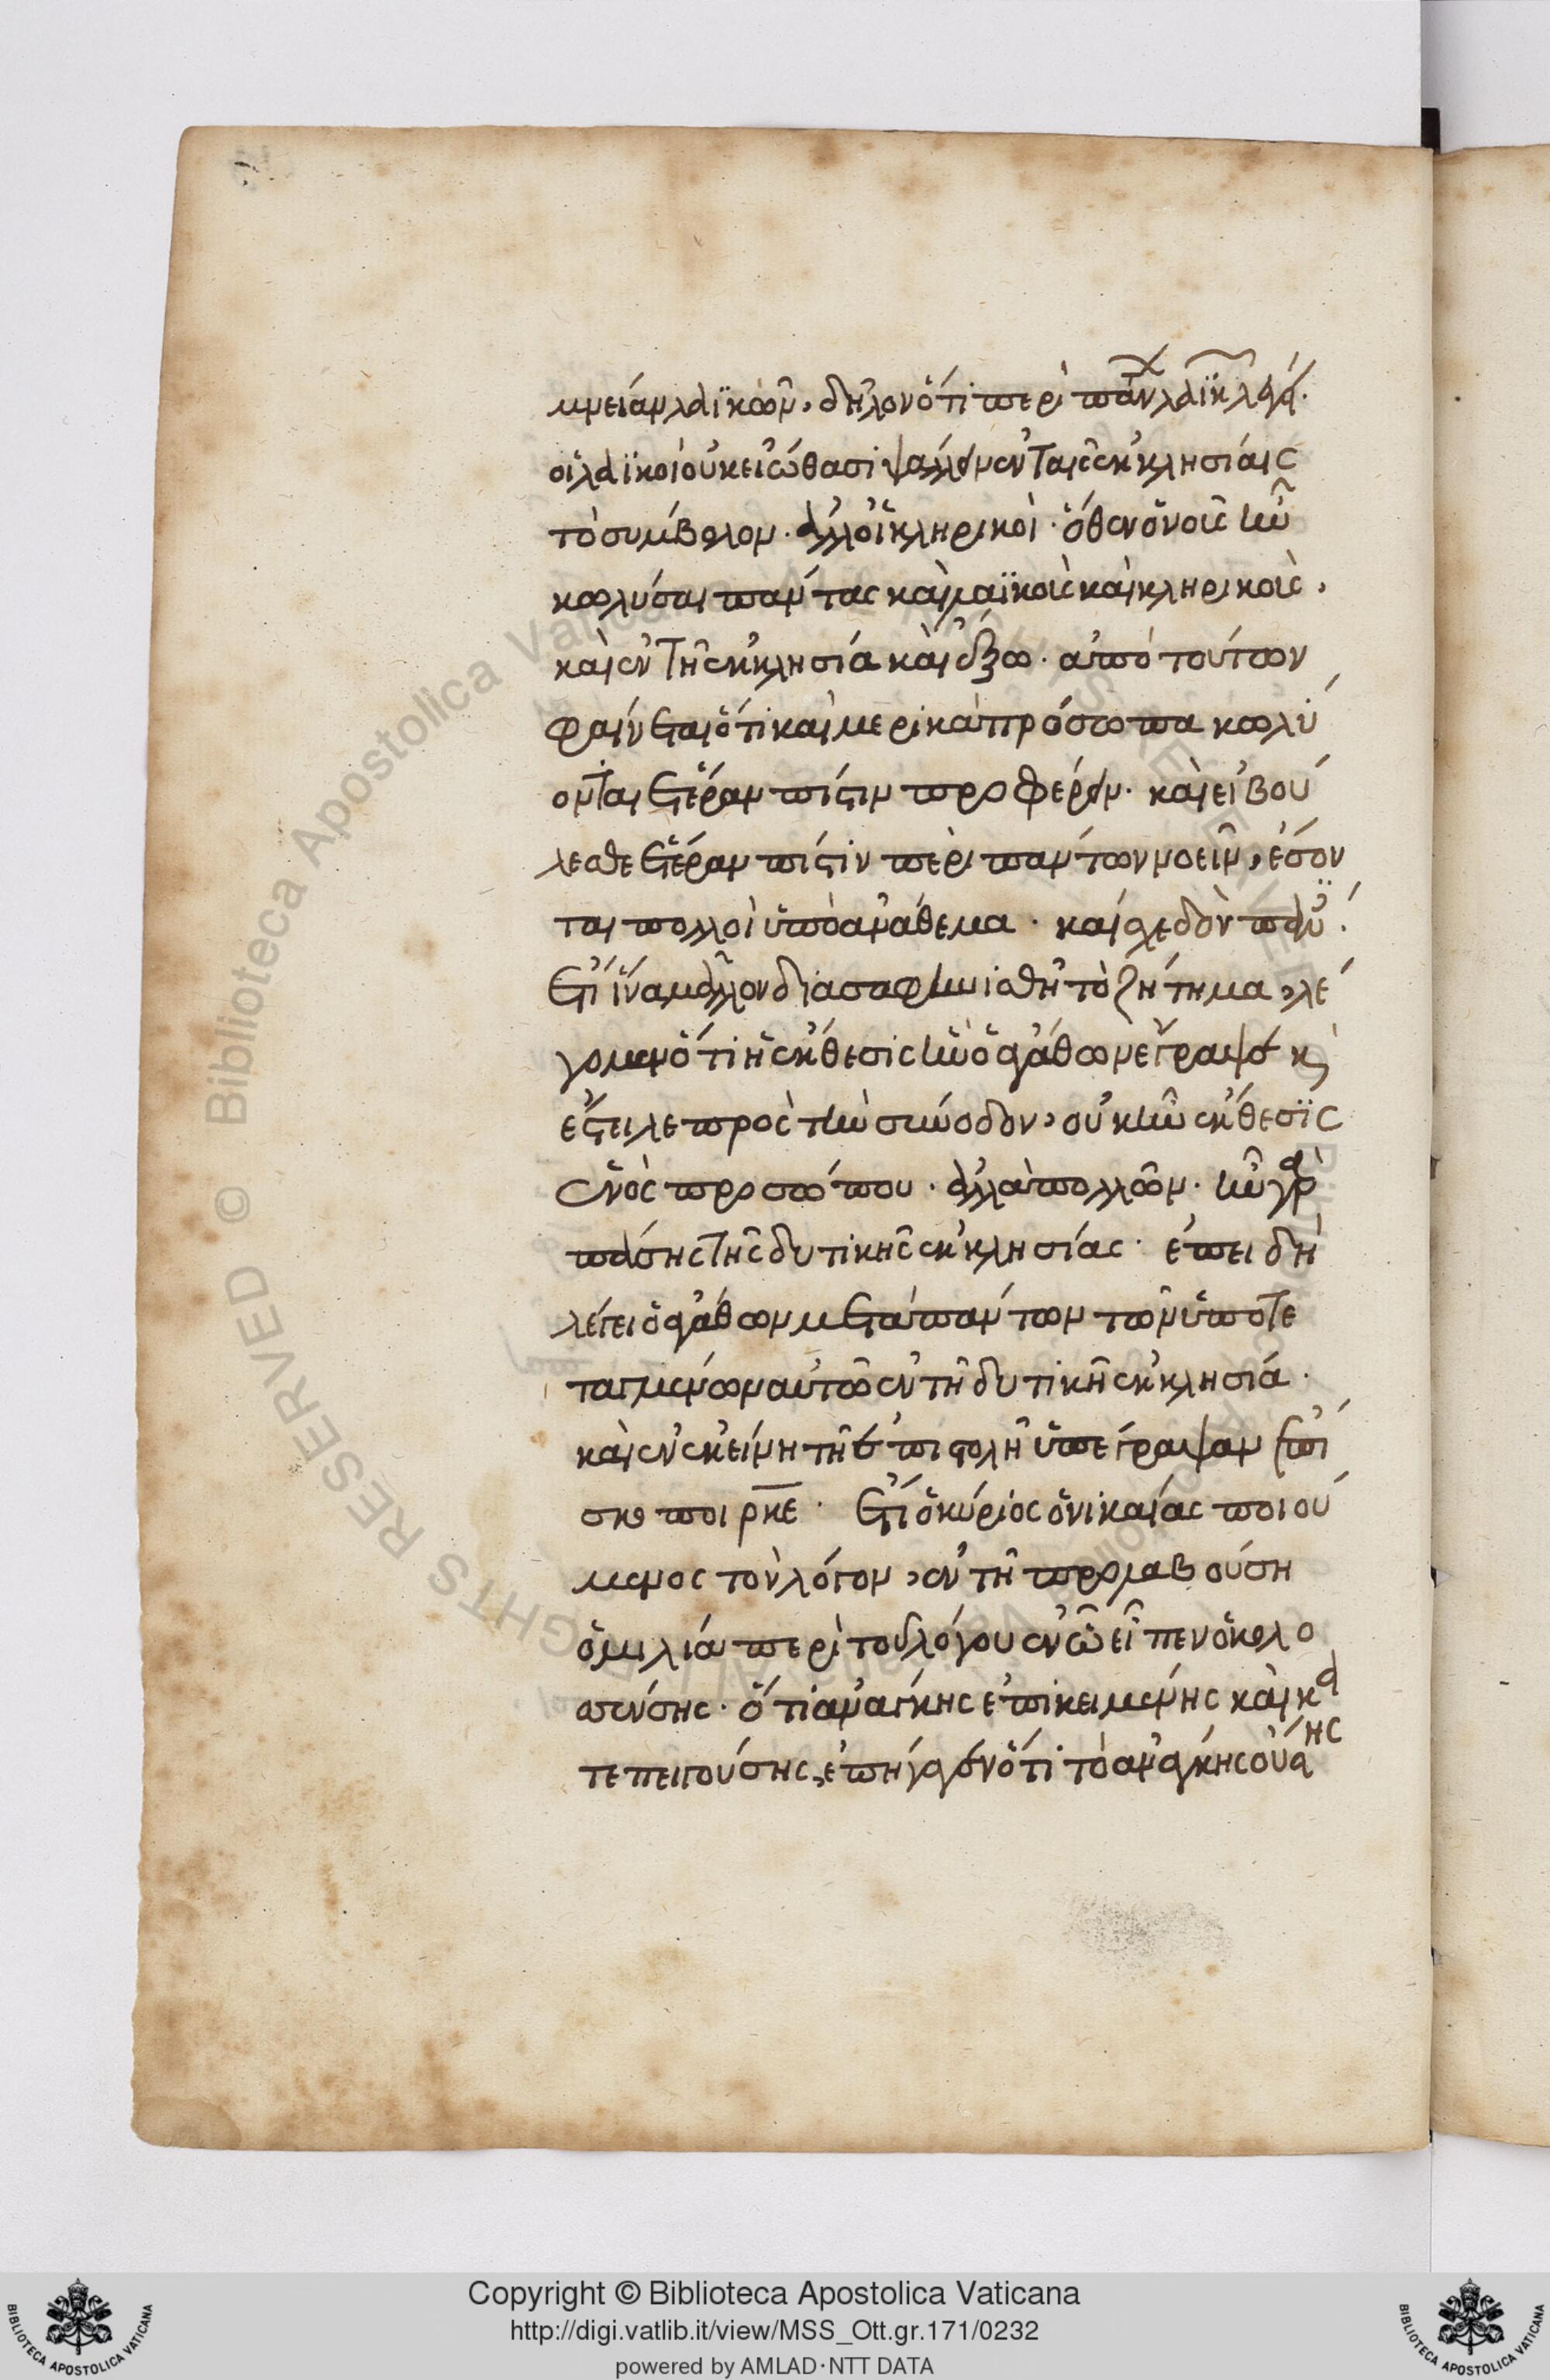 μνείαν λαϊκῶν, δῆλον ὅτι περὶ πάντων λαϊκῶν λέγει.
οἱ λαϊκοὶ οὐκ εἰώθασι ψάλλειν ἐν ταῖς ἐκκλησίαις
τὸ σύμβολον. ἀλλ' οἱ κληρικοί. ὅθεν ὁ νοῦς ἦν
κωλύσαι πάντας καὶ λαϊκοὺς καὶ κληρικοὺς,
καὶ ἐν τῇ ἐκκλησία καὶ ἔξω. ἀπὸ τούτων
φαίνεται ὅτι καὶ μερικὰ πρόσωπα κωλύ
ονται ἑτέραν πίστιν προφέρειν. καὶ εἰ βού
λεσθε ἑτέραν πίστιν περὶ πάντων νοεῖν, ἔσον
ται πολλοὶ ὑπὸ ἀνάθεμα. καὶ σχεδὸν
ἔτι ἵνα μᾶλλον διασαφηνισθῆ τὸ ζήτημα, λέ
γομεν ὅτι ἡ ἔκθεσις ἣν ὁ ἀγάθων ἔγραψε κ
ἔστειλε πρὸς τὴν σύνοδον, οὐκ ἦν ἔκθεσις
ἑνὸς προσώπου. ἀλλὰ πολλῶν. ἦν γὰρ
πάσης τῆς δυτικῆς ἐκκλησίας. ἐπειδὴ
λέγει ὁ ἀγάθων μετὰ πάντων τῶν ὑποτε
ταγμένων αὐτῶ ἐν τῆ δυτικῆ ἐκκλησία.
καὶ ἐν ἐκείνη τῆ ἐπιστολῆ ὑπέγραψαν ἐπί
σκοποι ρκε. ἔτι ὁ κύριος ὁ νικαίας ποιού
μενος τὸν λόγον, ἐν τῆ προλαβούση
ὁμιλία περὶ τοῦ λόγου ἐν ὧ εἶπεν ὁ κολο
σσένσης. ὅτι ἀνάγκης ἐπικειμένης καὶ κα
τεπειγούσης, ἐπήγαγεν ὅτι τὸ ἀνάγκης οὔσης